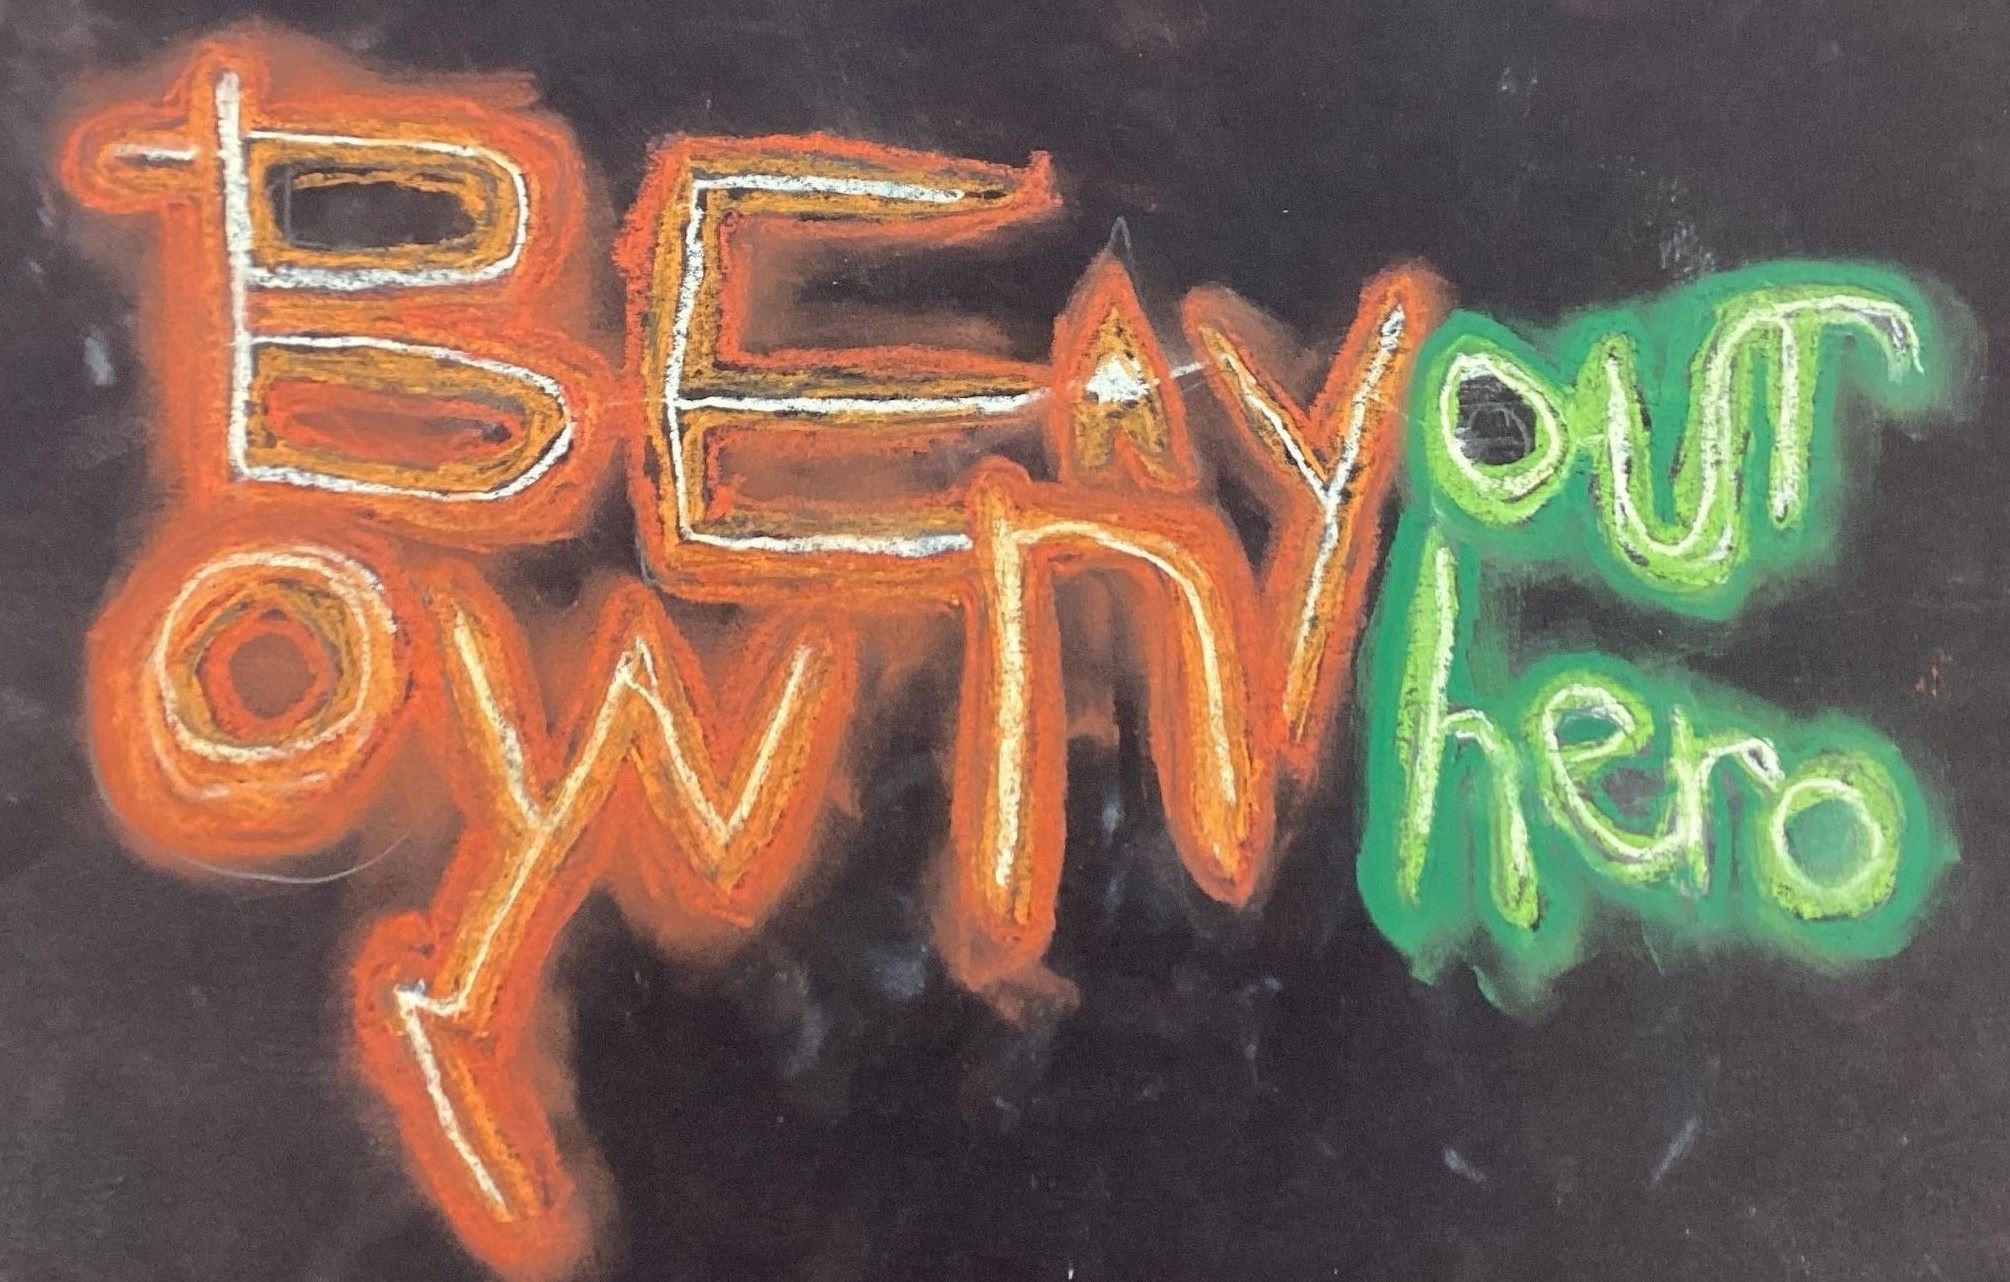 BE A YOUr
OWn hero